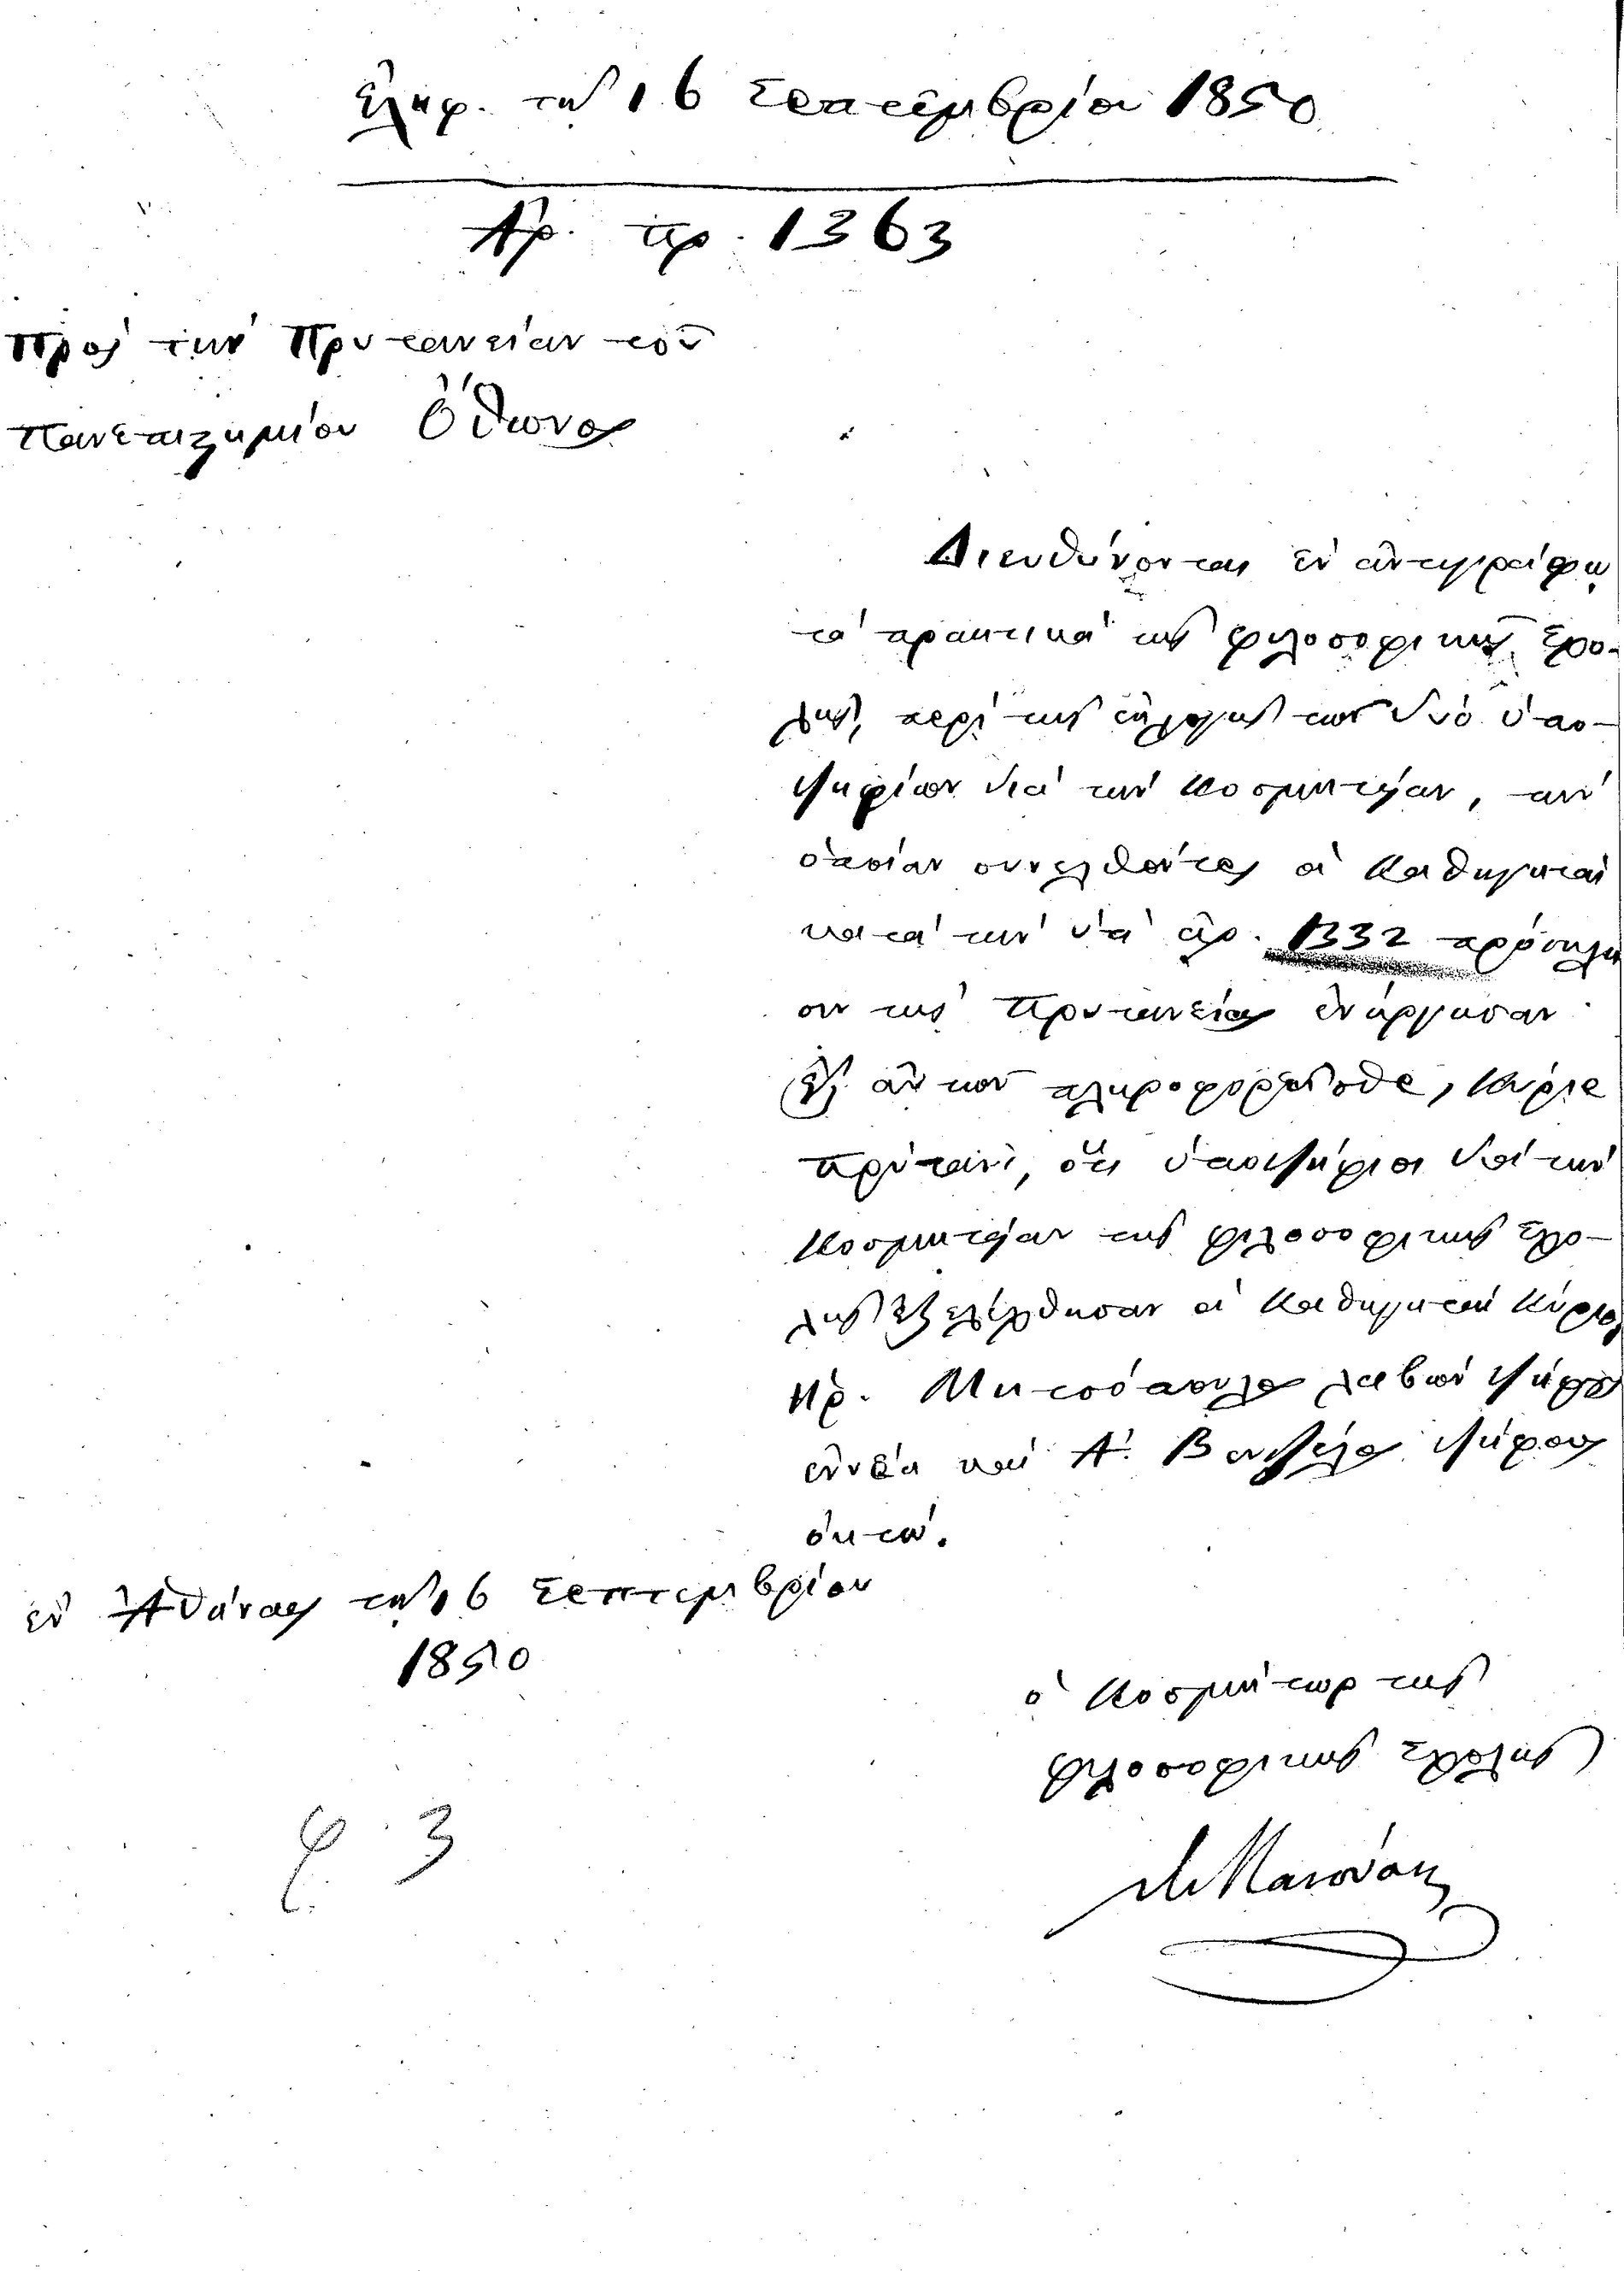 Ἐλήφ. τῇ 16 Σεπτεμβρίου 1850
Ἀρ. πρ. 1363
Πρὸς τὴν Πρυτανείαν τοῦ
Πανεπιστημίου Ὄθωνος
Διευθύνονται ἐν ἀντιγράφῳ
τὰ πρακτικὰ τῆς φιλοσοφικῆς Σχο-
λῆς, περὶ τῆς ἐκλογῆς τῶν δύο ὑπο-
ψηφίων διὰ τὴν Κοσμητείαν, τὴν
ὁποίαν συνελθόντες οἱ Καθηγηταὶ
κατὰ τὴν ὑπ' ἀρ. 1332 πρόσκλη
σιν τῆς Πρυτανείας ἐνήργησαν.
Ἐξ αὐτῶν πληροφορεῖσθε, Κύριε
Πρύτανι, ὅτι ὑποψήφιοι διὰ τὴν
Κοσμητείαν τῆς Φιλοσοφικῆς Σχο-
λῆς ἐξελέχθησαν οἱ Καθηγηταὶ Κύριοι
Ἡρ. Μητσόπουλος λαβὼν ψήφους
ἐννέα καὶ Ἀ. Βενθύλος ψήφους
ὀκτώ.
ἐν Ἀθήναις τῇ 16 Σεπτεμβρίου
1850
ὁ Κοσμήτωρ τῆς
Φιλοσοφικῆς Σχολῆς
φ 3